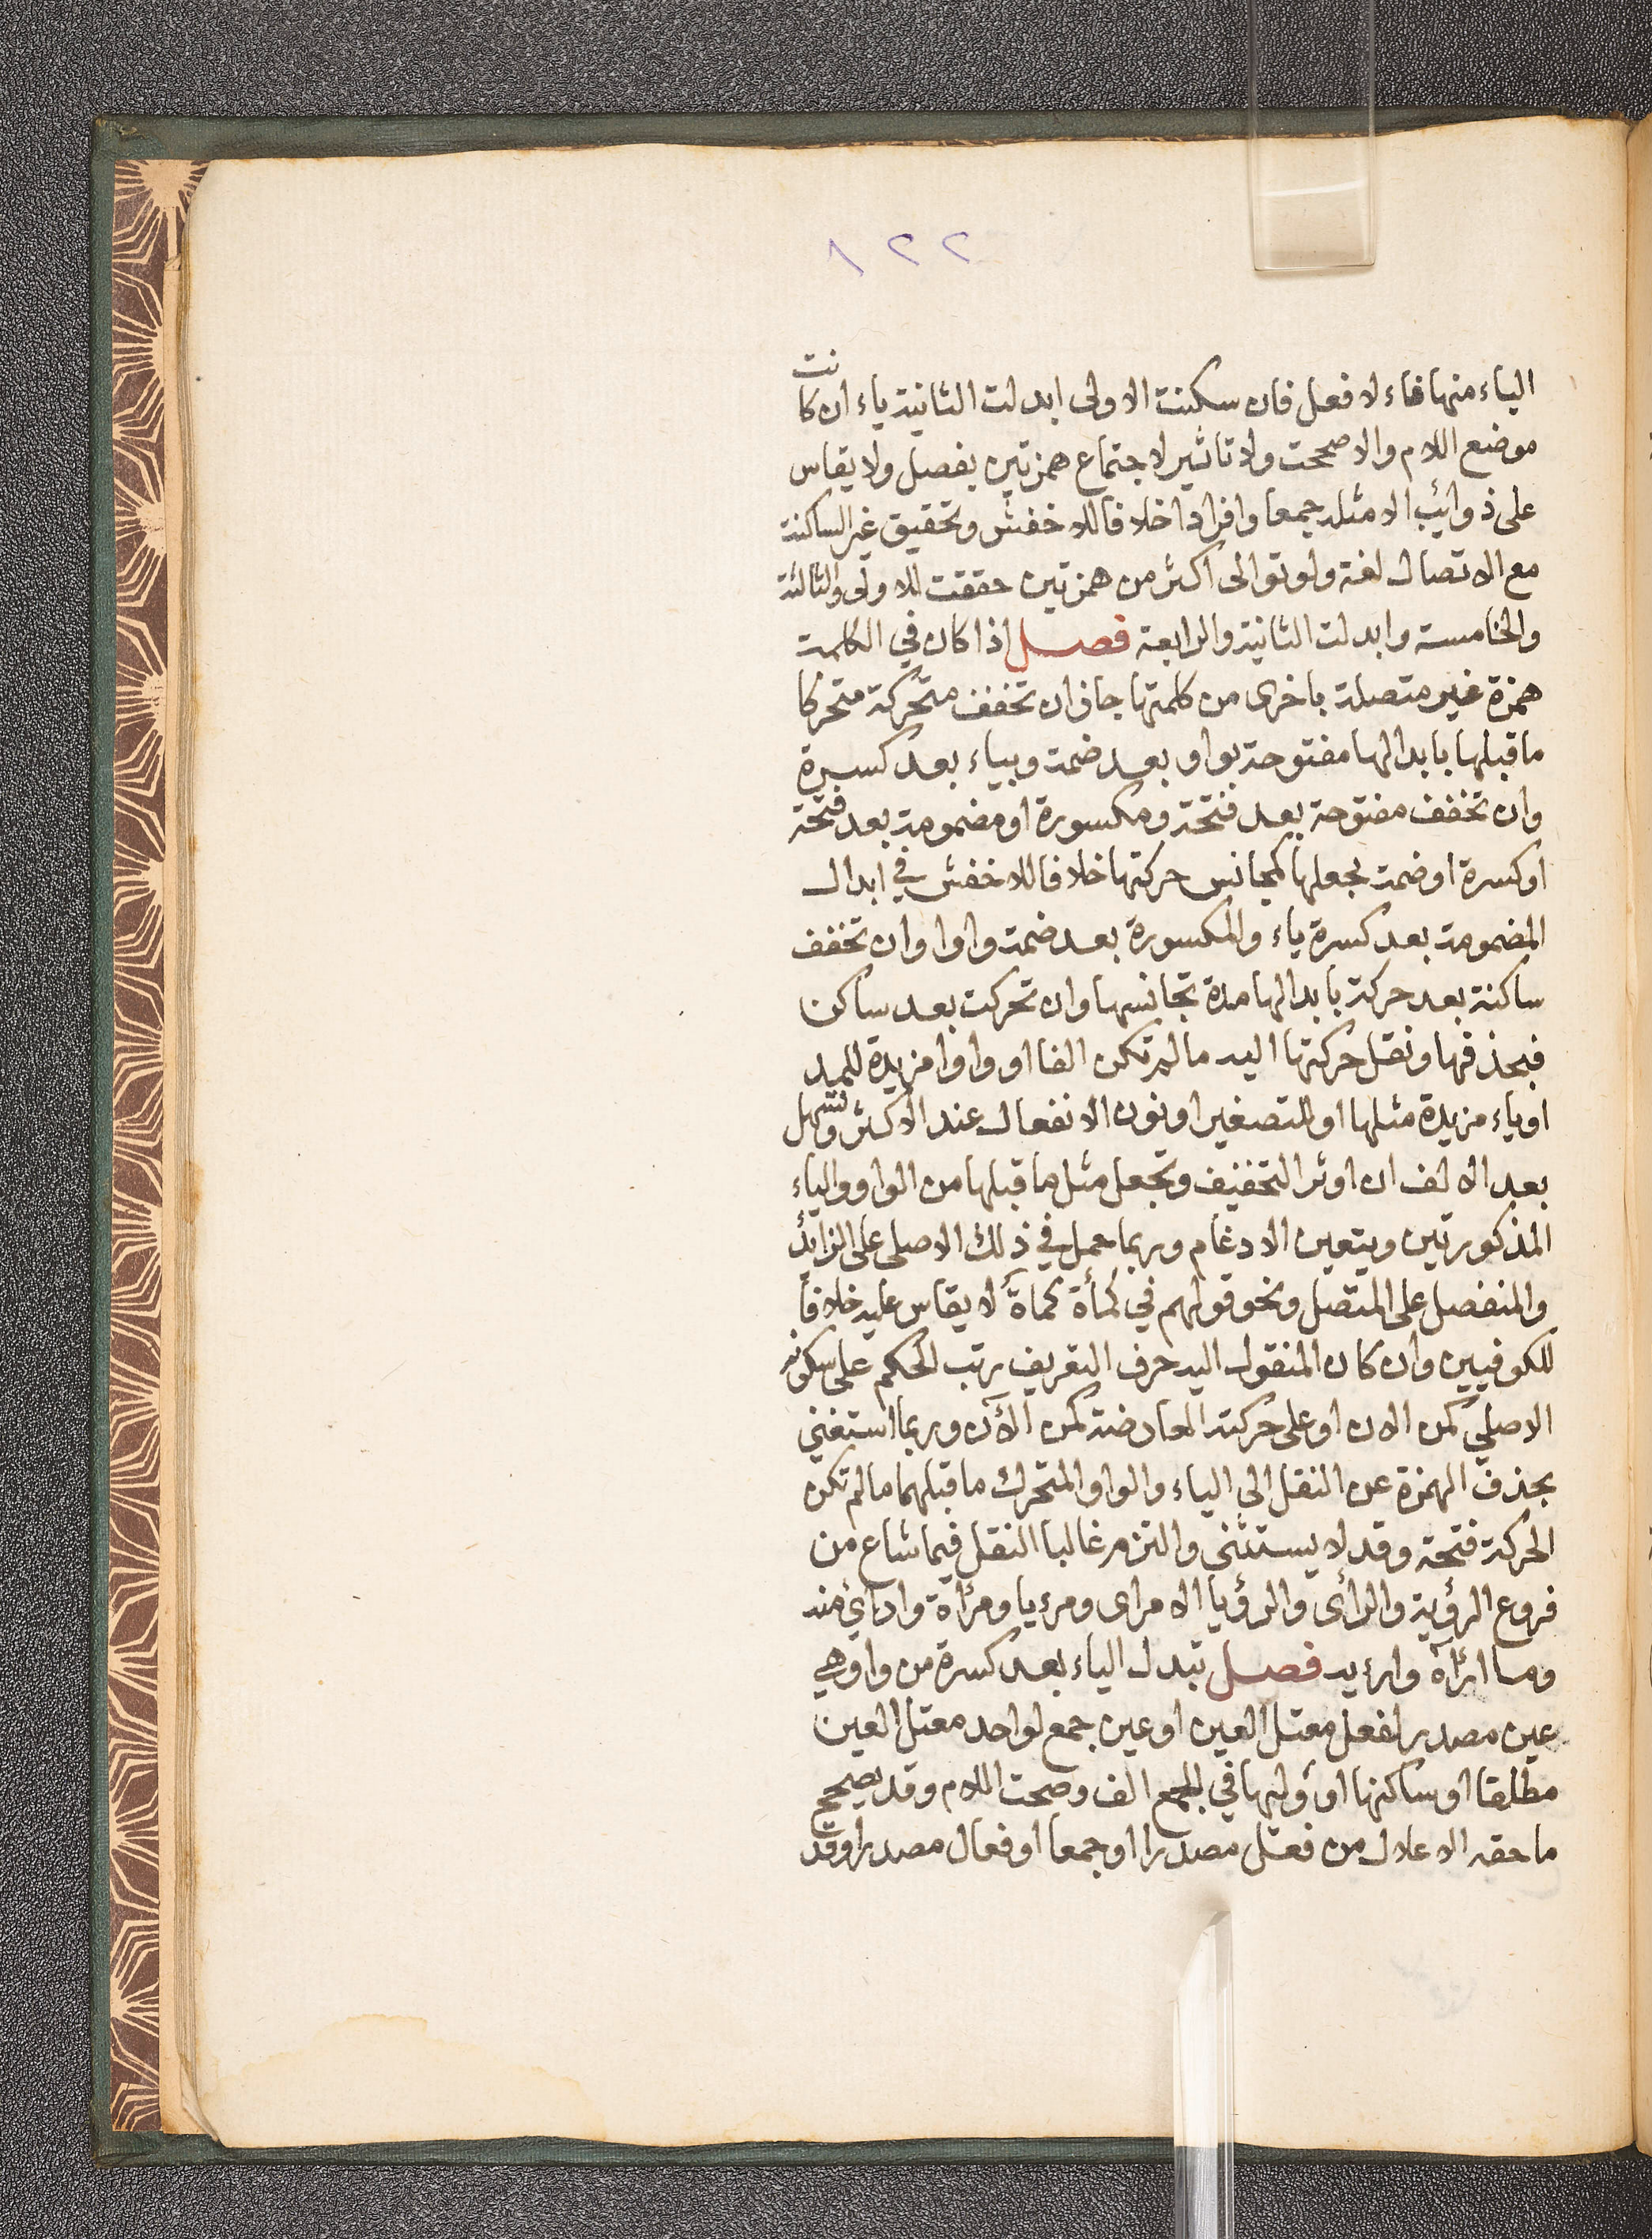 ١٢٢
الياء منها فاء لا فعل فان سكنت الاولى ابدلت الثانية ياء ان كانت
موضع اللام والا صححت ولا تاثير لاجتماع همزتين بفصل ولا يقاس
على ذوائب الا مثله جمعا وافرادا خلافا للاخفش وتحقيق غير الساكنة
مع الاتصال لغة ولو توالى اكثر من همزتين حققت الاولى والثالثة
والخامسة وابدلت الثانية والرابعة فصل اذا كان في الكلمة
همزة غير متصلة باخرى من كلمتها جاز ان تخفف متحركة متحركا
ما قبلها بابدالها مفتوحة بواو بعد ضمة وبياء بعد كسرة
وان تخفف مفتوحة بعد فتحة ومكسورة او مضمومة بعد فتحة
او كسرة او ضمة بجعلها كمجانس حركتها خلافا للاخفش في ابدال
المضمومة بعد كسرة ياء والمكسورة بعد ضمة واوا وان تخفف
ساكنة بعد حركة بابدالها مدة تجانسها وان تحركت بعد ساكن
فبحذفها ونقل حركتها اليه ما لم تكن الفا او واوا مزيدة للمد
او ياء مزيدة مثلها او للتصغير او نون الانفعال عند الاكثر وتسهل
بعد الالف ان اوثر التخفيف وتجعل مثل ما قبلها من الواو والياء
المذكورتين ويتعين الادغام وربما حمل في ذلك الاصلى على الزايد
والمنفصل على المتصل ونحو قولهم في كمأة كماة لا يقاس عليه خلافا
للكوفيين وان كان المنقول اليه حرف التعريف رتب الحكم على سكونه
الاصلي كمن الان او على حركته العارضة كمن الآن وربما استغني
بحذف الهمزة عن النقل الى الياء والواو المتحرك ما قبلهما ما لم تكن
الحركة فتحة وقد لا يستثنى والتزم غالبا النقل فيما شاع من
فروع الرؤية والرأى والرؤيا الا مراى ومرءيا ومرآة وارأى منه
وما ارآه وارءيه فصل تبدل الياء بعد كسرة من واو هي
عين مصدر لفعل معتل العين او عين جمع لواحد معتل العين
مطلقا او ساكنها او وليها في الجمع الف وصحت اللام وقد يصحح
ما حقه الاعلال من فعل مصدرا او جمعا او فعال مصدرا وقد